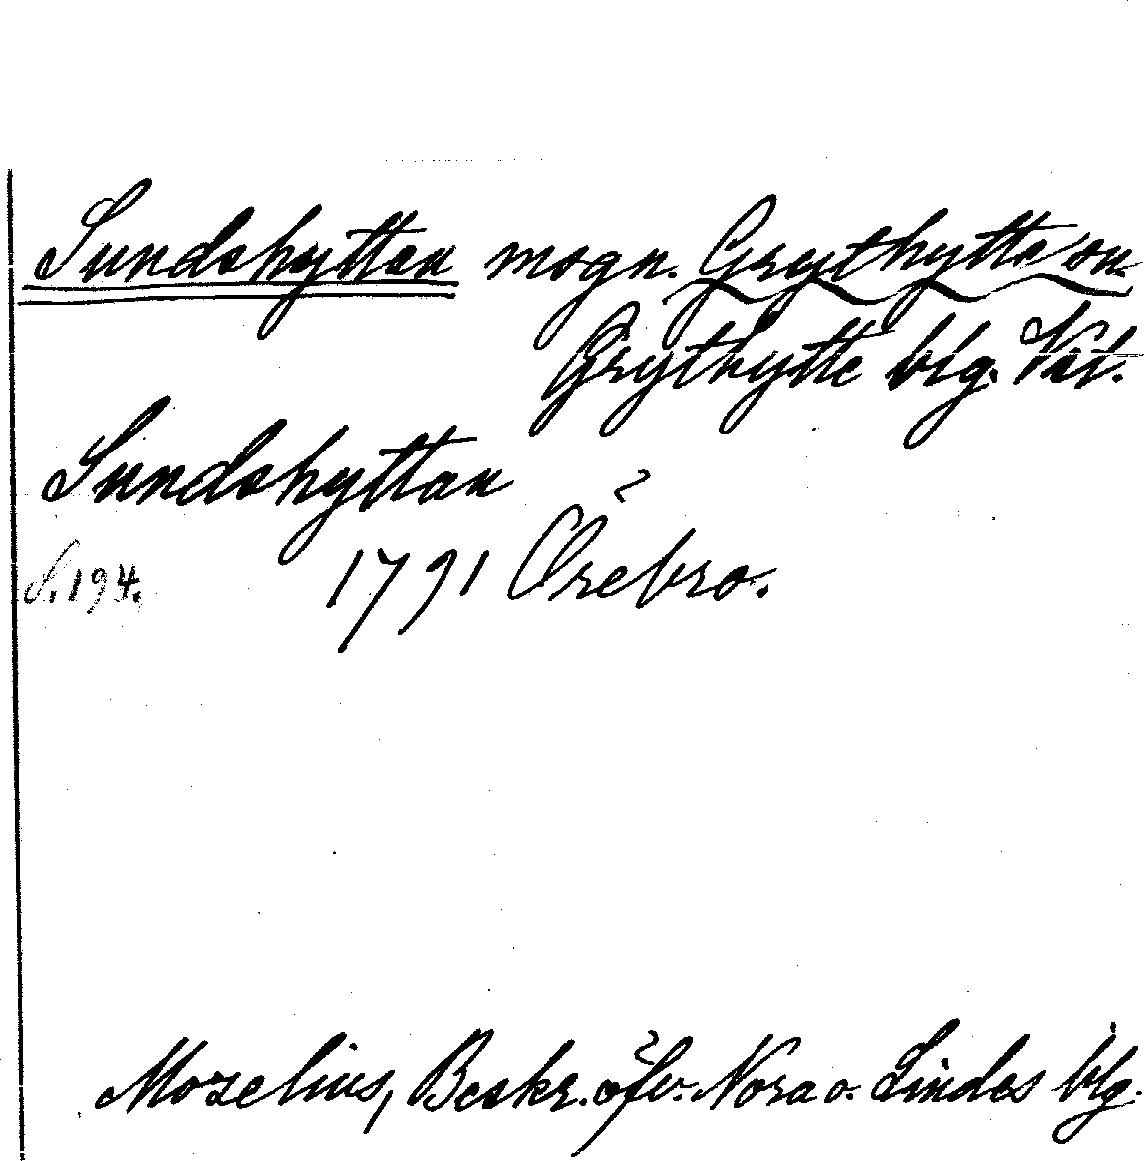 Sundshyttan mogn. Grythytte sn
Grythytte blg. Vsl.
Sundshyttan
S. 194. 1791 Örebro.
Mozelius, Beskr. öfv. Nora o. Lindes blg.